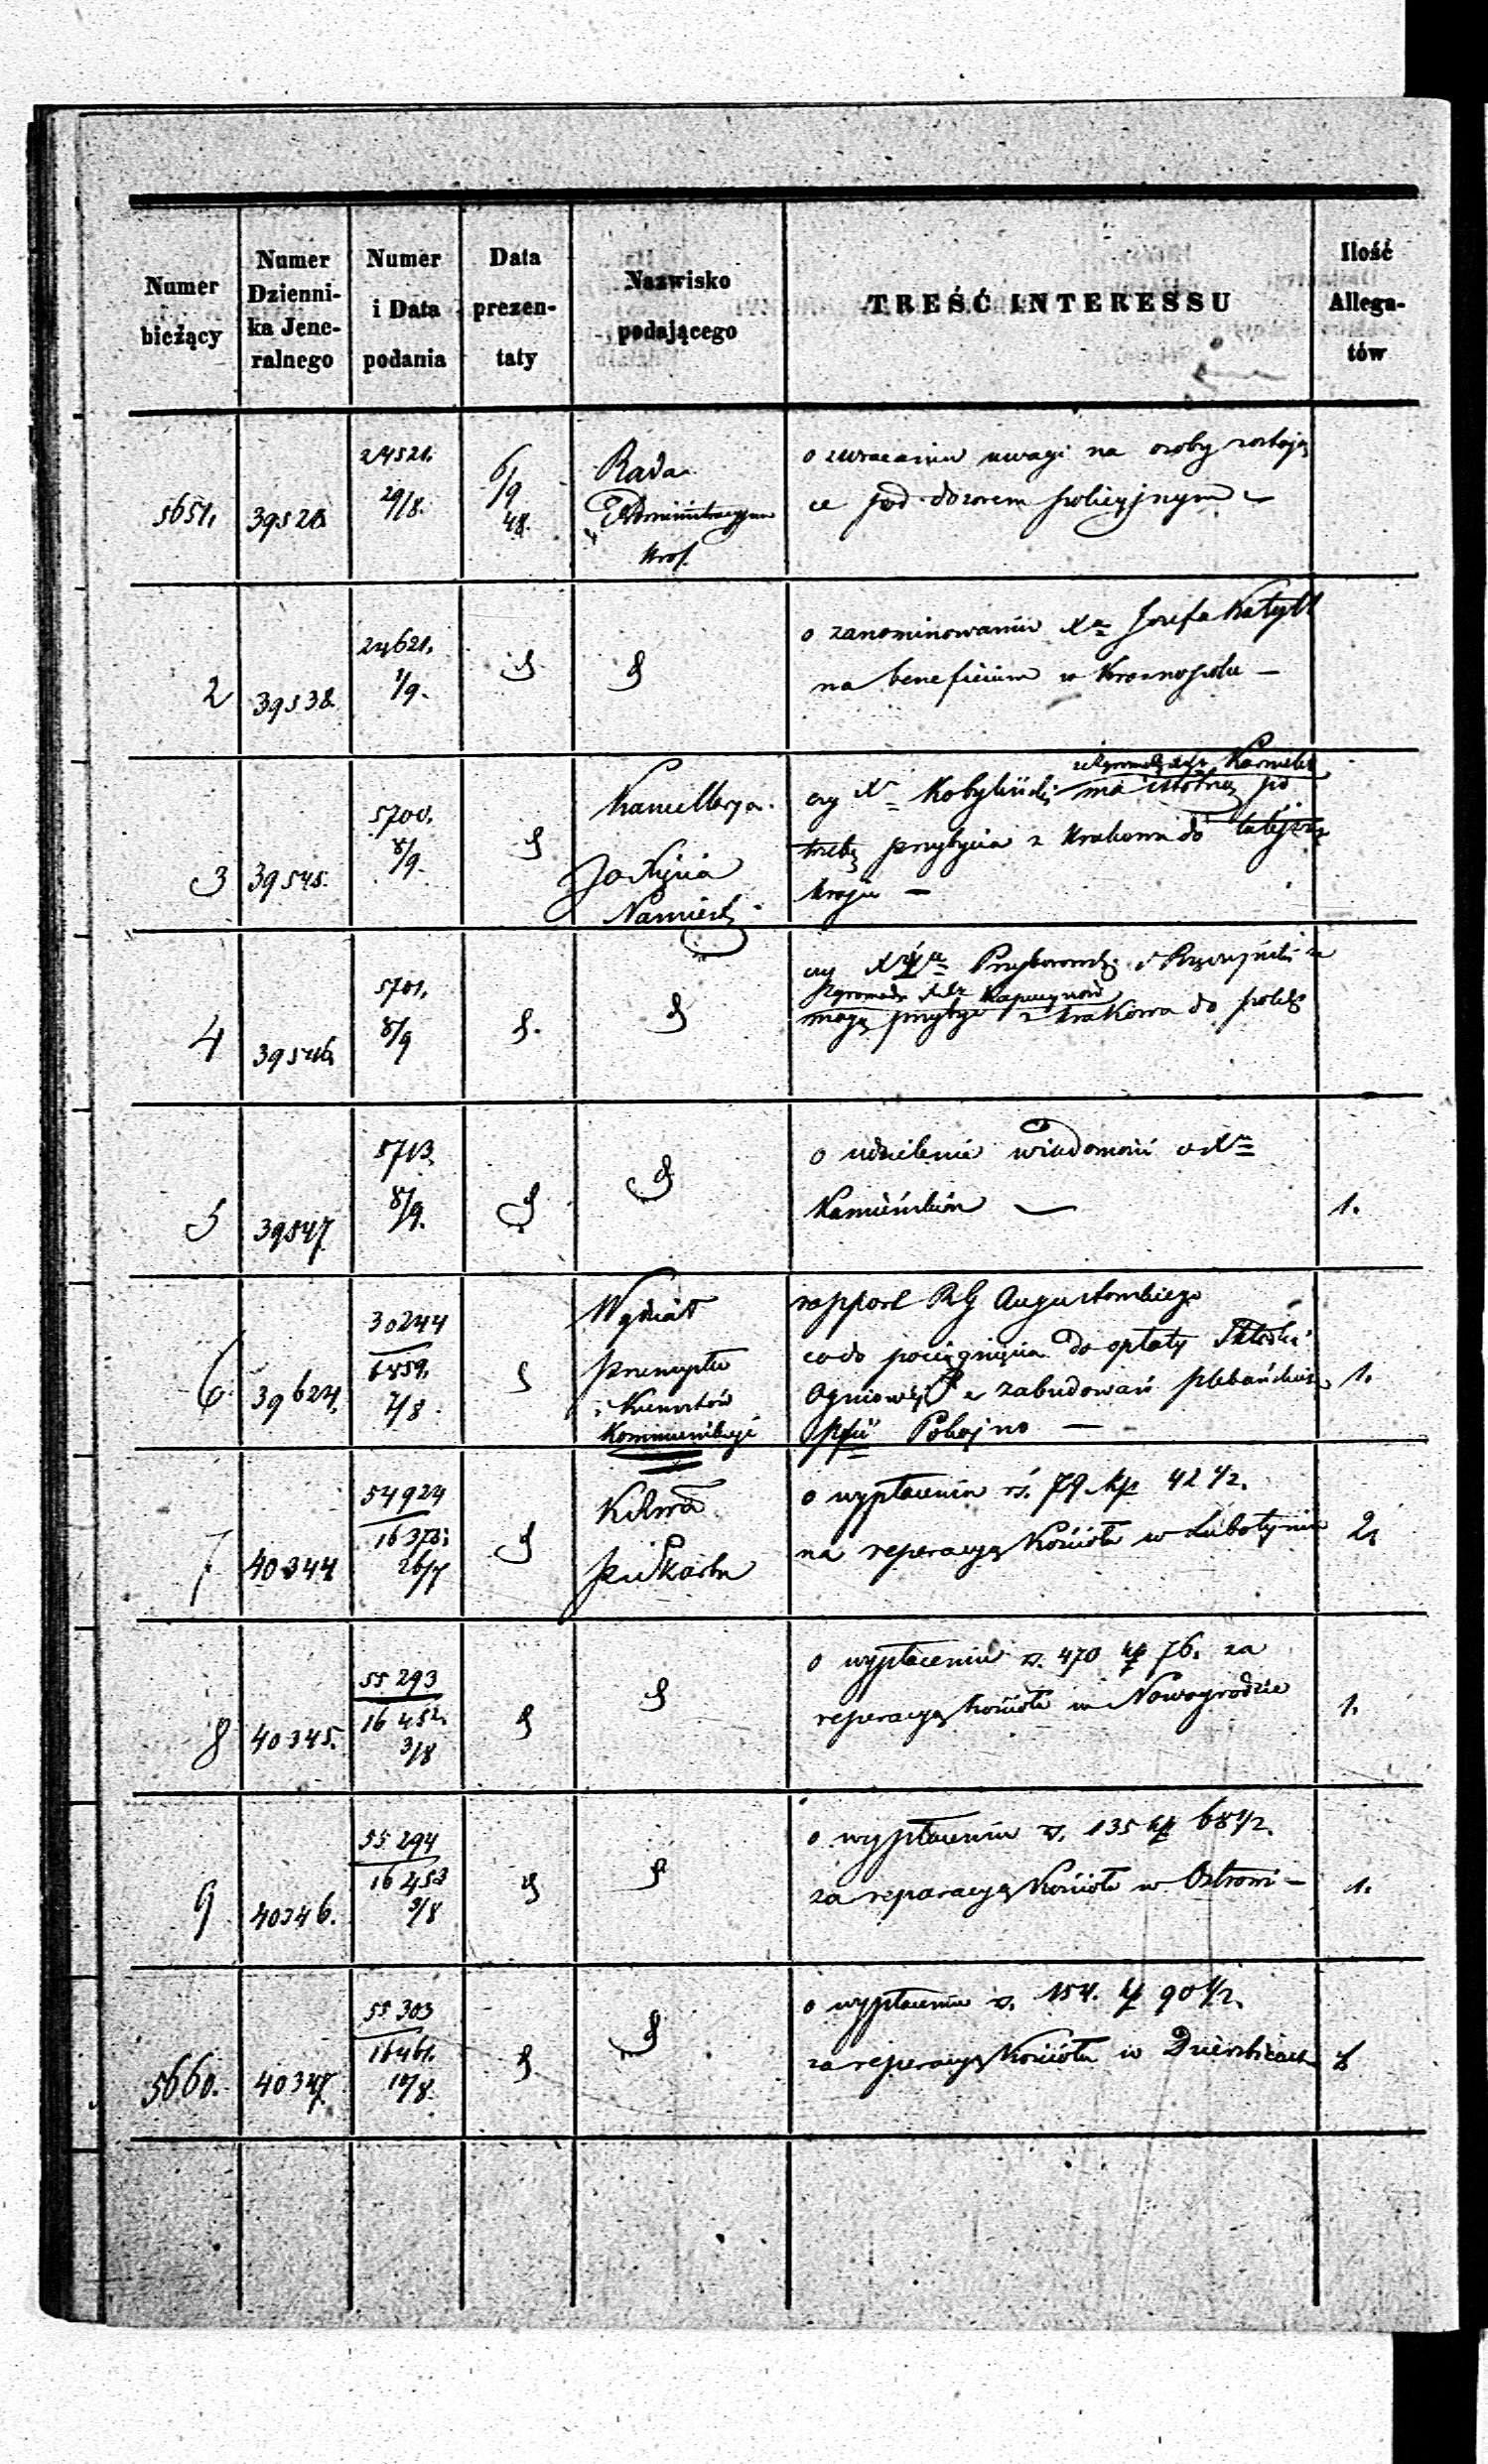 Numer bieżący
Numer Dzienni-ka Jene-ralnego
Numer i Data podania
Data prezen-taty
Nazwisko podającego
TREŚĆ INTERESSU
Ilość Allega-tów
5651. 39526 24521. 29/8. 6/9 48. Rada Administracyjna Król.
o zwracaniu uwagi na osoby zostają
ce pod dozorem policyjnym
2 39538 24621. 1/9.
o zanominowaniu Xa Jozefa
na beneficium w Krasnopolu —
3 39545. 5700. 8/9. Kancellarya Jo Xięcia Namiest.
Karmelit
czy X Kobyliński ma istotną po
trzebę przybycia z Krakowa do tutejsze
kraju —
4 39546 5701. 8/9
czy Przyborowski i
Zgromadz. Kapucynów
mogą przybyć z Krakowa do
5 39547 5713. 8/9.
o udzielenie wiadomości o Xu
Kamieńskim — 1.
6 39624. 30244 6859. 7/8. Wydział przemysłu i Kunsztów Kommunikuje
rapport RG Augustowskiego
co do pociągnięcia do opłaty Składki
Ogniowej z zabudowań plebańskich 1.
Pojno —
7 40344 54924 16373. 26/7
o wypłaceniu rs. 79 kp 42 1/2.
na reperacyą Kościoła w Lubotyniu 2.
8 40345. 55293 16452. 3/8
o wypłaceniu rs. 470 kp 76. za
reperacyą kościoła w Nowogrodzie 1.
9 40346. 55294 16453 3/8
o wypłaceniu rs. 135 kp 68 1/2.
za reparacyą Kościoła w Ostrowi — 1.
5660. 40347. 55303 16461. 10/8.
o wypłaceniu rs. 154. kp 90 1/2.
za reperacyą Kościoła w